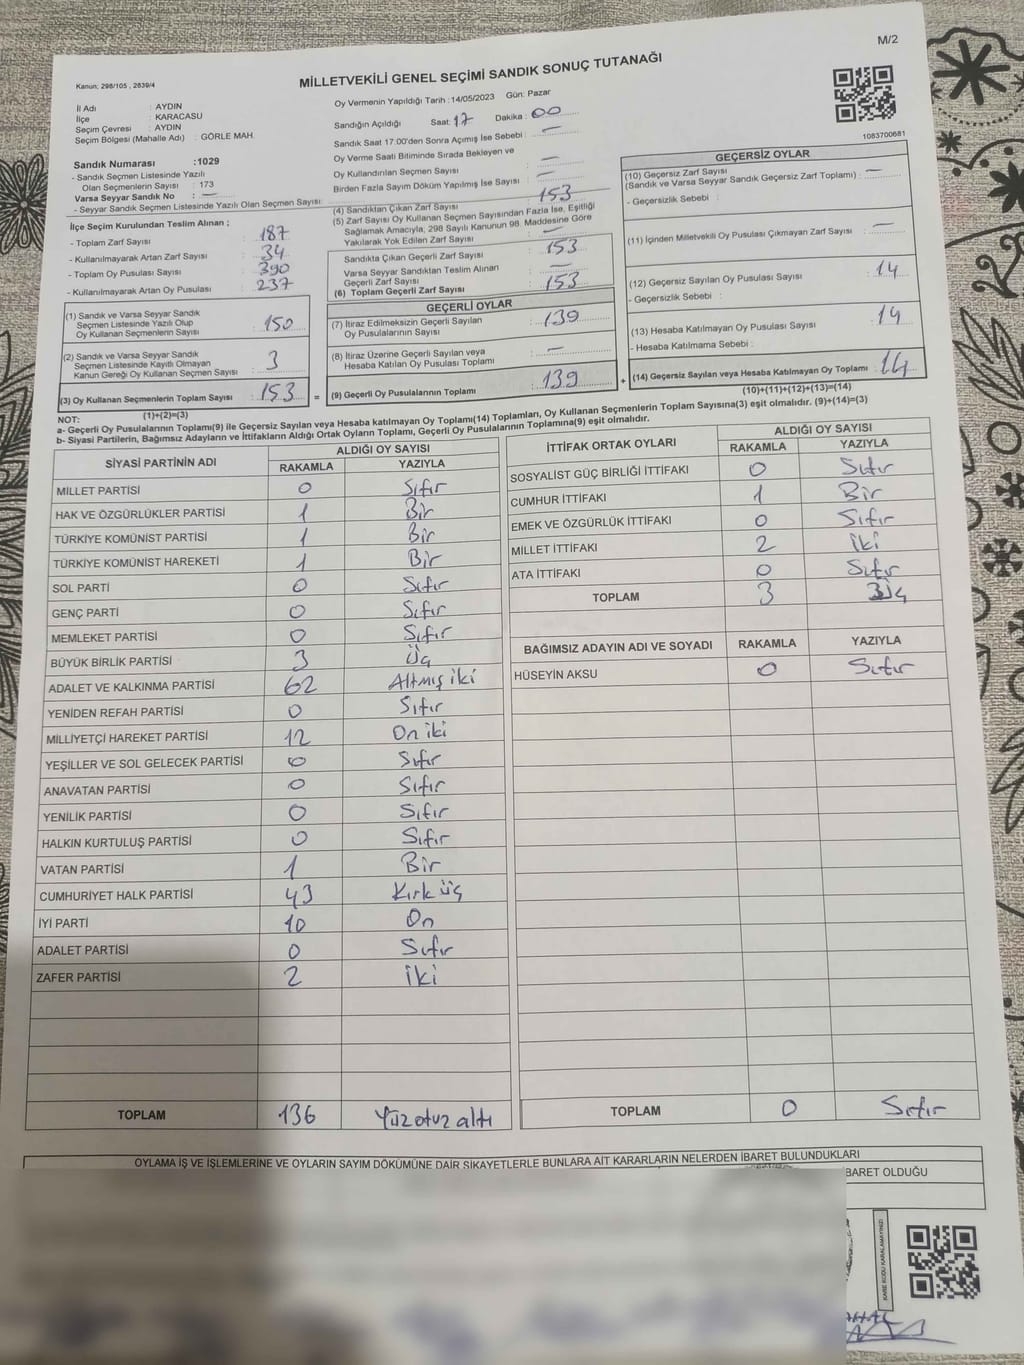 M/2
Kanun; 298/105 , 2839/4
MİLLETVEKİLİ GENEL SEÇİMİ SANDIK SONUÇ TUTANAĞI
İl Adı : AYDIN
İlçe : KARACASU
Seçim Çevresi : AYDIN
Seçim Bölgesi (Mahalle Adı) : GÖRLE MAH.
Oy Vermenin Yapıldığı Tarih : 14/05/2023 Gün: Pazar
Sandığın Açıldığı Saat: 17 Dakika : 00
Sandık Saat 17:00'den Sonra Açılmış İse Sebebi : —
Oy Verme Saati Bitiminde Sırada Bekleyen ve
Oy Kullandırılan Seçmen Sayısı : —
Birden Fazla Sayım Döküm Yapılmış İse Sayısı : —
1083700681
Sandık Numarası :1029
- Sandık Seçmen Listesinde Yazılı
Olan Seçmenlerin Sayısı : 173
Varsa Seyyar Sandık No : —
- Seyyar Sandık Seçmen Listesinde Yazılı Olan Seçmen Sayısı:
İlçe Seçim Kurulundan Teslim Alınan ;
- Toplam Zarf Sayısı : 187
- Kullanılmayarak Artan Zarf Sayısı : 34
- Toplam Oy Pusulası Sayısı : 390
- Kullanılmayarak Artan Oy Pusulası : 237
(1) Sandık ve Varsa Seyyar Sandık
Seçmen Listesinde Yazılı Olup
Oy Kullanan Seçmenlerin Sayısı : 150
(2) Sandık ve Varsa Seyyar Sandık
Seçmen Listesinde Kayıtlı Olmayan
Kanun Gereği Oy Kullanan Seçmen Sayısı : 3
(3) Oy Kullanan Seçmenlerin Toplam Sayısı : 153 =
(1)+(2)=(3)
(4) Sandıktan Çıkan Zarf Sayısı : 153
(5) Zarf Sayısı Oy Kullanan Seçmen Sayısından Fazla İse, Eşitliği
Sağlamak Amacıyla, 298 Sayılı Kanunun 98. Maddesine Göre
Yakılarak Yok Edilen Zarf Sayısı : —
Sandıkta Çıkan Geçerli Zarf Sayısı : 153
Varsa Seyyar Sandıktan Teslim Alınan
Geçerli Zarf Sayısı : —
(6) Toplam Geçerli Zarf Sayısı : 153
GEÇERLİ OYLAR
(7) İtiraz Edilmeksizin Geçerli Sayılan
Oy Pusulalarının Sayısı : 139
(8) İtiraz Üzerine Geçerli Sayılan veya
Hesaba Katılan Oy Pusulası Toplamı : —
(9) Geçerli Oy Pusulalarının Toplamı : 139 +
GEÇERSİZ OYLAR
(10) Geçersiz Zarf Sayısı
(Sandık ve Varsa Seyyar Sandık Geçersiz Zarf Toplamı) : —
- Geçersizlik Sebebi :
(11) İçinden Milletvekili Oy Pusulası Çıkmayan Zarf Sayısı : —
(12) Geçersiz Sayılan Oy Pusulası Sayısı : 14
- Geçersizlik Sebebi :
(13) Hesaba Katılmayan Oy Pusulası Sayısı : 14
- Hesaba Katılmama Sebebi :
(14) Geçersiz Sayılan veya Hesaba Katılmayan Oy Toplamı : 14
(10)+(11)+(12)+(13)=(14)
NOT:
a- Geçerli Oy Pusulalarının Toplamı(9) ile Geçersiz Sayılan veya Hesaba katılmayan Oy Toplamı(14) Toplamları, Oy Kullanan Seçmenlerin Toplam Sayısına(3) eşit olmalıdır. (9)+(14)=(3)
b- Siyasi Partilerin, Bağımsız Adayların ve İttifakların Aldığı Ortak Oyların Toplamı, Geçerli Oy Pusulalarının Toplamına(9) eşit olmalıdır.
SİYASİ PARTİNİN ADI ALDIĞI OY SAYISI
RAKAMLA YAZIYLA
MİLLET PARTİSİ 0 Sıfır
HAK VE ÖZGÜRLÜKLER PARTİSİ 1 Bir
TÜRKİYE KOMÜNİST PARTİSİ 1 Bir
TÜRKİYE KOMÜNİST HAREKETİ 1 Bir
SOL PARTİ 0 Sıfır
GENÇ PARTİ 0 Sıfır
MEMLEKET PARTİSİ 0 Sıfır
BÜYÜK BİRLİK PARTİSİ 3 Üç
ADALET VE KALKINMA PARTİSİ 62 Altmış iki
YENİDEN REFAH PARTİSİ 0 Sıfır
MİLLİYETÇİ HAREKET PARTİSİ 12 On iki
YEŞİLLER VE SOL GELECEK PARTİSİ 0 Sıfır
ANAVATAN PARTİSİ 0 Sıfır
YENİLİK PARTİSİ 0 Sıfır
HALKIN KURTULUŞ PARTİSİ 0 Sıfır
VATAN PARTİSİ 1 Bir
CUMHURİYET HALK PARTİSİ 43 Kırk üç
İYİ PARTİ 10 On
ADALET PARTİSİ 0 Sıfır
ZAFER PARTİSİ 2 iki
TOPLAM 136 Yüz otuz altı
İTTİFAK ORTAK OYLARI ALDIĞI OY SAYISI
RAKAMLA YAZIYLA
SOSYALİST GÜÇ BİRLİĞİ İTTİFAKI 0 Sıfır
CUMHUR İTTİFAKI 1 Bir
EMEK VE ÖZGÜRLÜK İTTİFAKI 0 Sıfır
MİLLET İTTİFAKI 2 iki
ATA İTTİFAKI 0 Sıfır
TOPLAM 3 Üç
BAĞIMSIZ ADAYIN ADI VE SOYADI RAKAMLA YAZIYLA
HÜSEYİN AKSU 0 Sıfır
TOPLAM 0 Sıfır
OYLAMA İŞ VE İŞLEMLERİNE VE OYLARIN SAYIM DÖKÜMÜNE DAİR ŞİKAYETLERLE BUNLARA AİT KARARLARIN NELERDEN İBARET BULUNDUKLARI
BARET OLDUĞU
KARE KODU KARALAMAYINIZ!